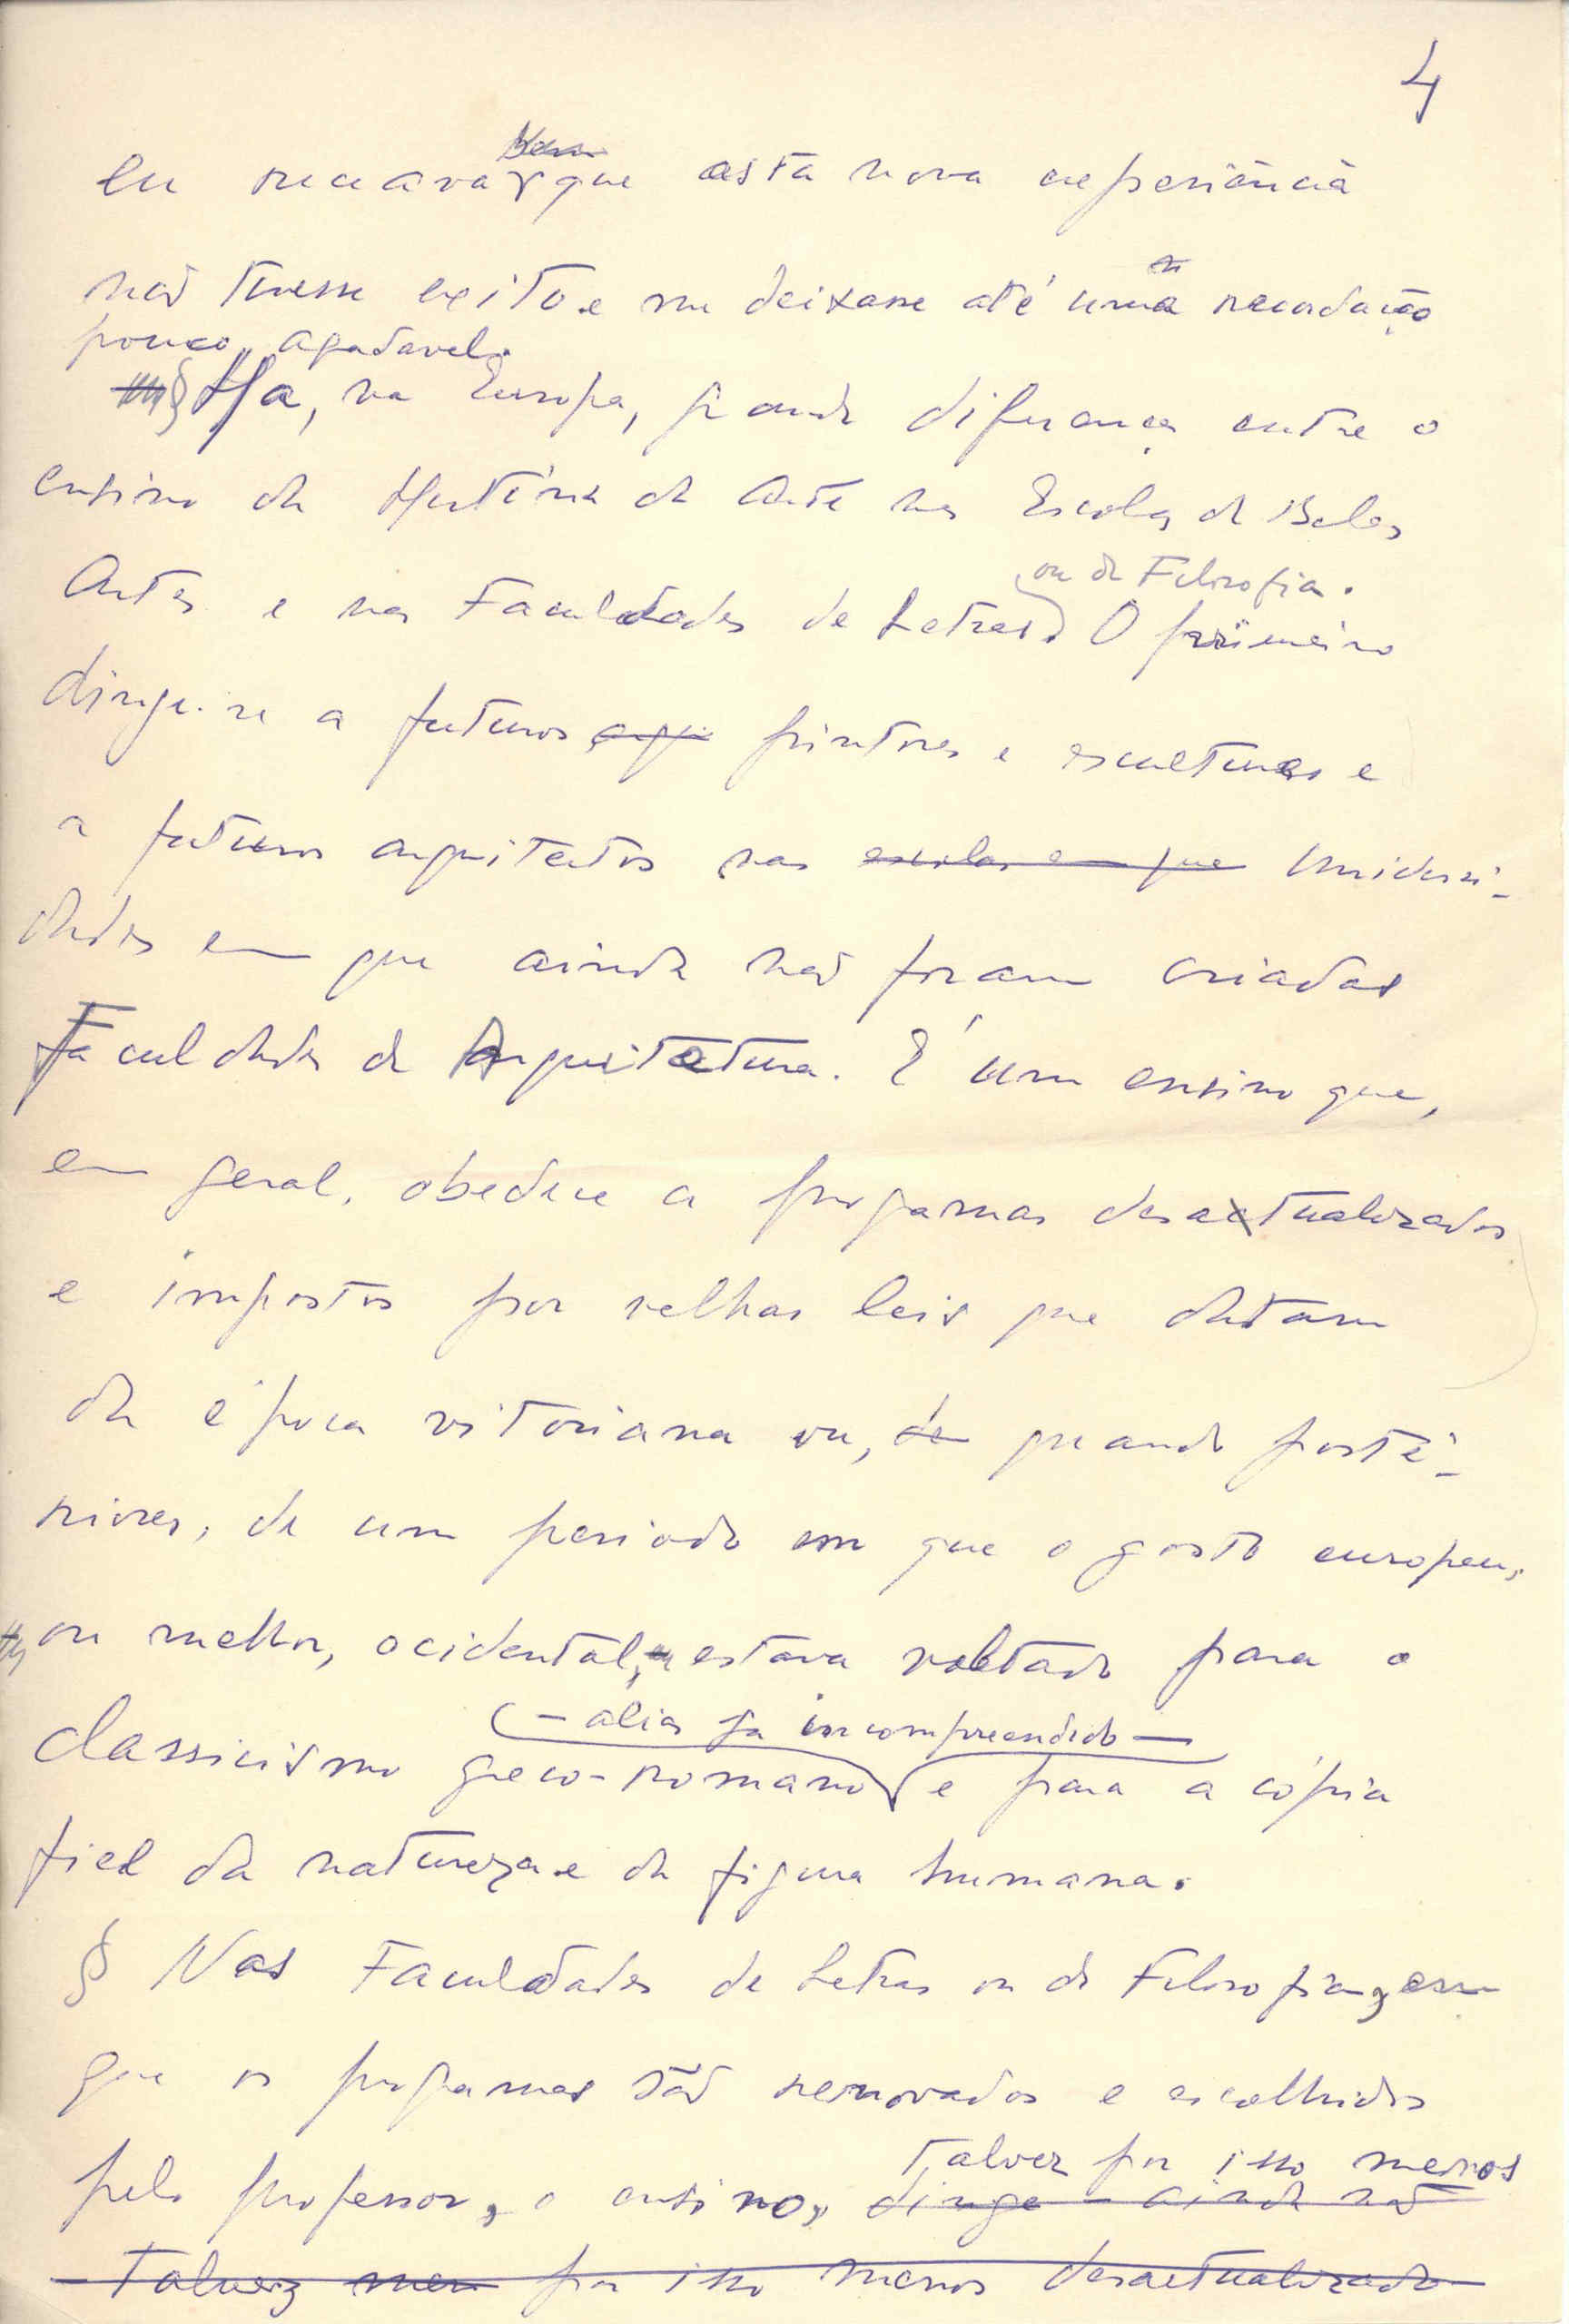 4
eu receava que esta nova experiência
não tivesse exito e me deixasse até uma recordação
pouco agradavel.
§ Ha, na Europa, grande diferença entre o
ensino da História da Arte nas Escolas de Belas
ou de Filosofia.
Artes e nas Faculdades de Letras. O primeiro
dirige-se a futuros pintores e escultores e
a futuros arquitectos nas escolas em que Universi-
dades em que ainda não foram criadas
Faculdades de Arquitetura. É um ensino que,
em geral, obedece a programas desactualizados
e impostos por velhas leis que datam
da época vitoriana ou, de quando posté-
riores, de um periodo em que o gosto europeu,
ou melhor, ocidental, estava voltado para o
- alias ja incompreendido -
classicismo greco-romano e para a cópia
fiel da natureza e da figura humana.
§ Nas Faculdades de Letras ou de Filosofia, em
que os programas são renovados e escolhidos
talvez por isso menos
pelo professor, o ensino, dirige - ainda não
- Talvez men por isso menos desactualizado